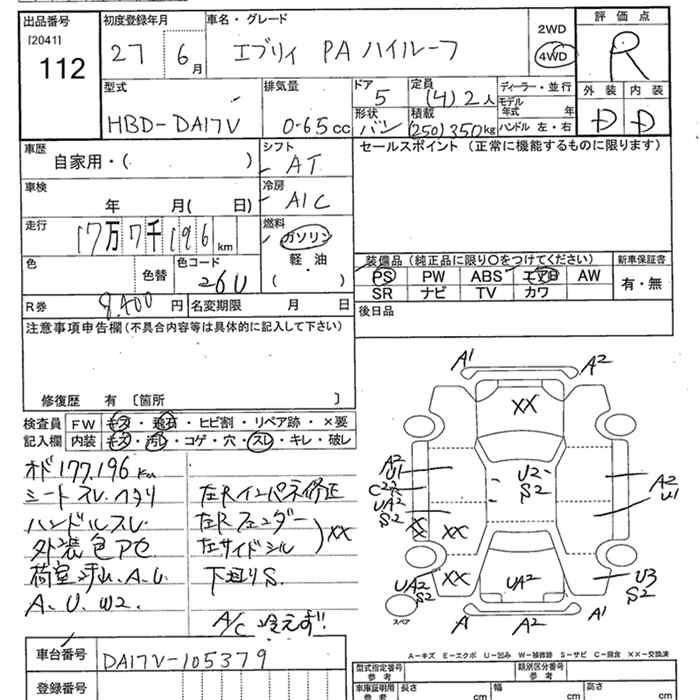 出品番号
[2041]
112
初度登録年月
27 6月
車名・グレード
エブリィ PA ハイルーフ
2WD
4WD
評価点
R
外装 内装
D D
型式
HBD-DA17V
排気量
0.65cc
ドア
5
定員
(4) 2人
形状
バン
積載
(250) 350kg
ディーラー・並行
モデル年式 年
ハンドル 左・右
車歴
自家用・( )
シフト
AT
車検
年 月( 日)
冷房
A/C
走行
17万7千196km
燃料
ガソリン
軽・油
( )
色
色替
色コード
26U
R券 8,400 円
名変期限 月 日
セールスポイント (正常に機能するものに限ります)
装備品 (純正品に限り○をつけてください)
PS PW ABS エアB AW
SR ナビ TV カワ
新車保証書
有・無
後日品
注意事項申告欄(不具合内容等は具体的に記入して下さい)
修復歴 有 〔箇所 〕
検査員記入欄
FW キズ・飛石・ヒビ割・リペア跡・×要
内装 キズ・汚レ・コゲ・穴・スレ・キレ・破レ
オド177,196km
シートスレ、ヘタリ
ハンドルスレ
外装色アセ
荷室汚レ、A.U.
A、U、W2.
左Rインパネ修正
左Rフェンダー
左サイドシル
XX
下廻りS.
A/C 冷えず!!
A1 A2
XX
A2
U1
C2
UA2
S2
XX
XX
U2
S2
A2
U1
UA2
S2
XX
UA2
U3
S2
スペア
A A2 A1
A-キズ E-エクボ U-凹み W-補修跡 S-サビ C-腐食 XX-交換済
車台番号
DA17V-105379
登録番号
型式指定番号
参考
類別区分番号
参考
車庫証明用
参考
長さ cm
幅 cm
高さ cm